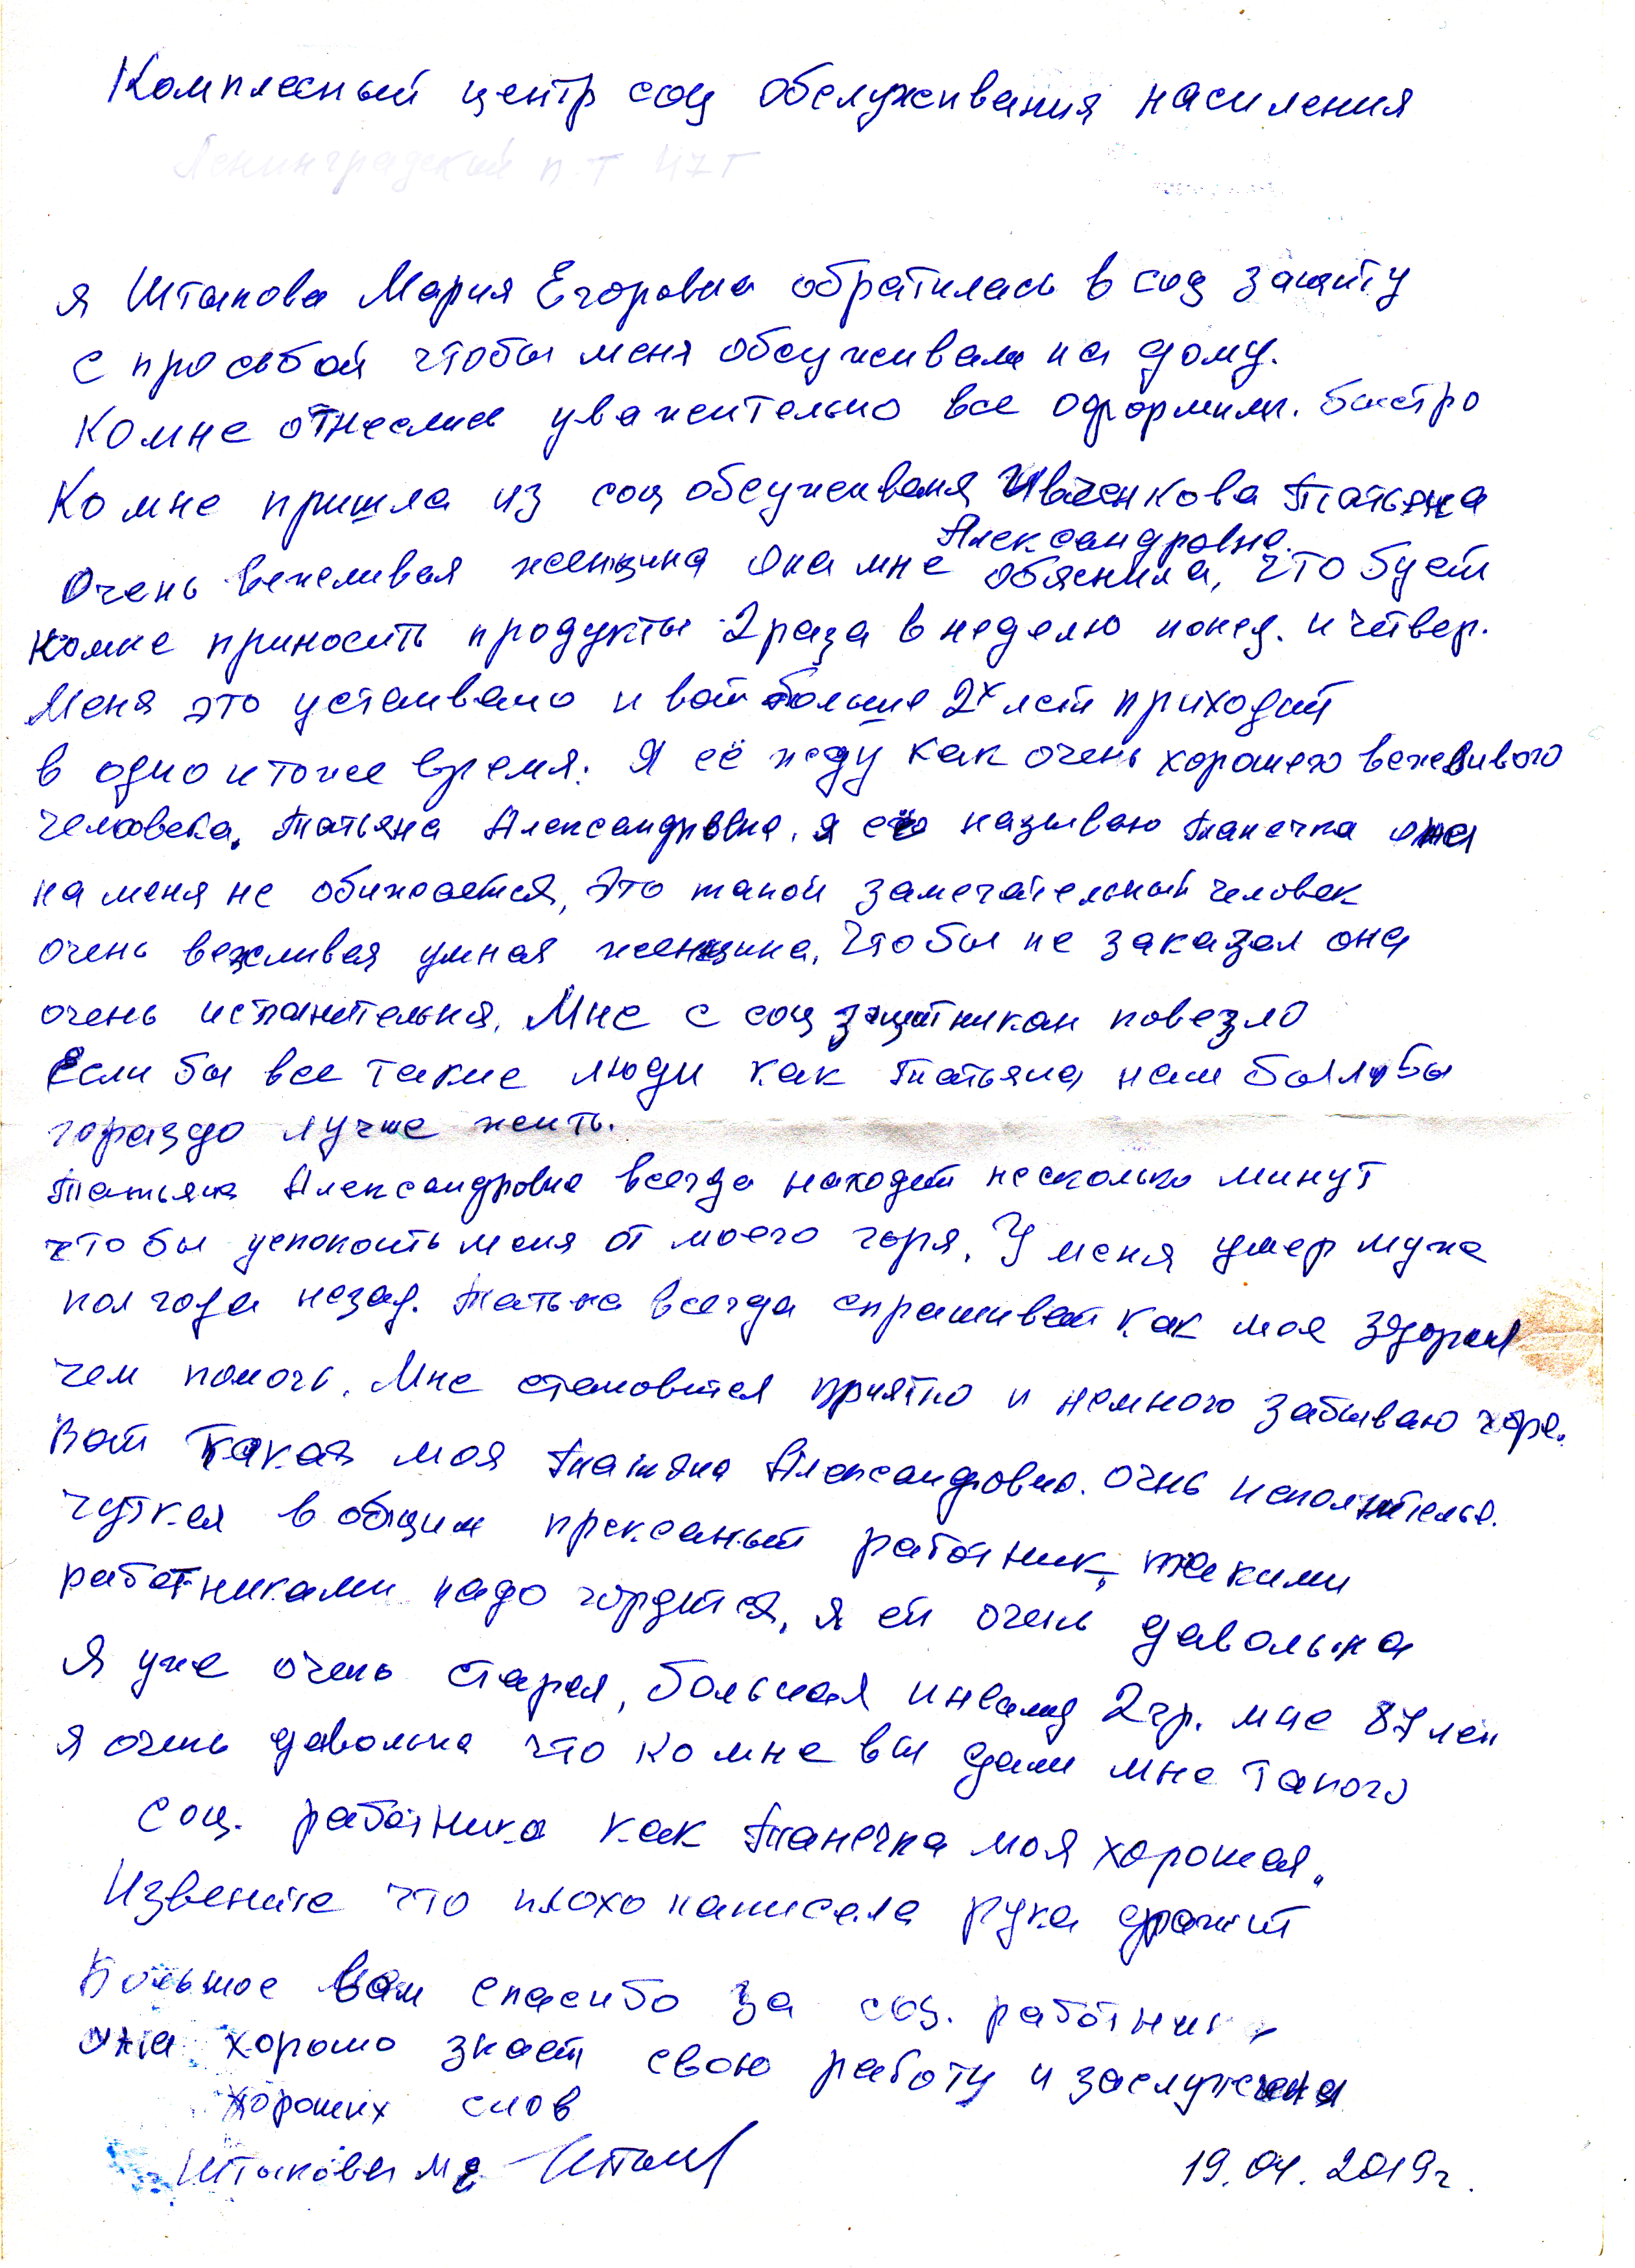 Комплесный центр соц обслуживания насиления
Ленинградский п-т 47г
я Штыкова Мария Егоровна обратилась в соц защиту
с просьбой чтобы меня обсуживали на дому.
Ко мне отнеслись уважительно все оформили. быстро
Ко мне пришла из соц обсуживания Иваченкова Татьяна
Александровна.
Очень вежливая женщина Она мне обяснила, что будет
комне приносить продукты 2 раза в неделю понед. и четвер.
Меня это устаивало и вот больше 2х лет приходит
в одно и тоже время. Я её жду как очень хорошего вежливого
человека. Татьяна Александровна, я её называю Танечка она
на меня не обижается, Это такой замечательный человек
очень вежливая умная женщина, Чтобы не заказал она
очень исполнительная. Мне с соц защитникам повезло
Если бы все такие люди как Татьяна нам былобы
гораздо лучше жить.
Татьяна Александровна всегда находит несколько минут
что бы успокоить меня от моего горя. У меня умер муж
пол года назад. Татьяна всегда спрашивает как мое
чем помочь. Мне становится приятно и немного забываю горе.
Вот такая моя Татьяна Александровна. очнь исполнительна.
чуткая в общим прексаный работник, такими
работниками надо гордится, я ей очень давольна
Я уже очень старая, больная инвалид 2 гр. мне 87 лет
я очень давольна что ко мне вы дали мне такого
соц. работника как Танечка моя хорошая.
Извените что плохо написала рука дрожит
Большое вам спасибо за соц. работника
она хорошо знает свою работу и заслужена
хороших слов
Штыкова М Е
19.04.2019г.